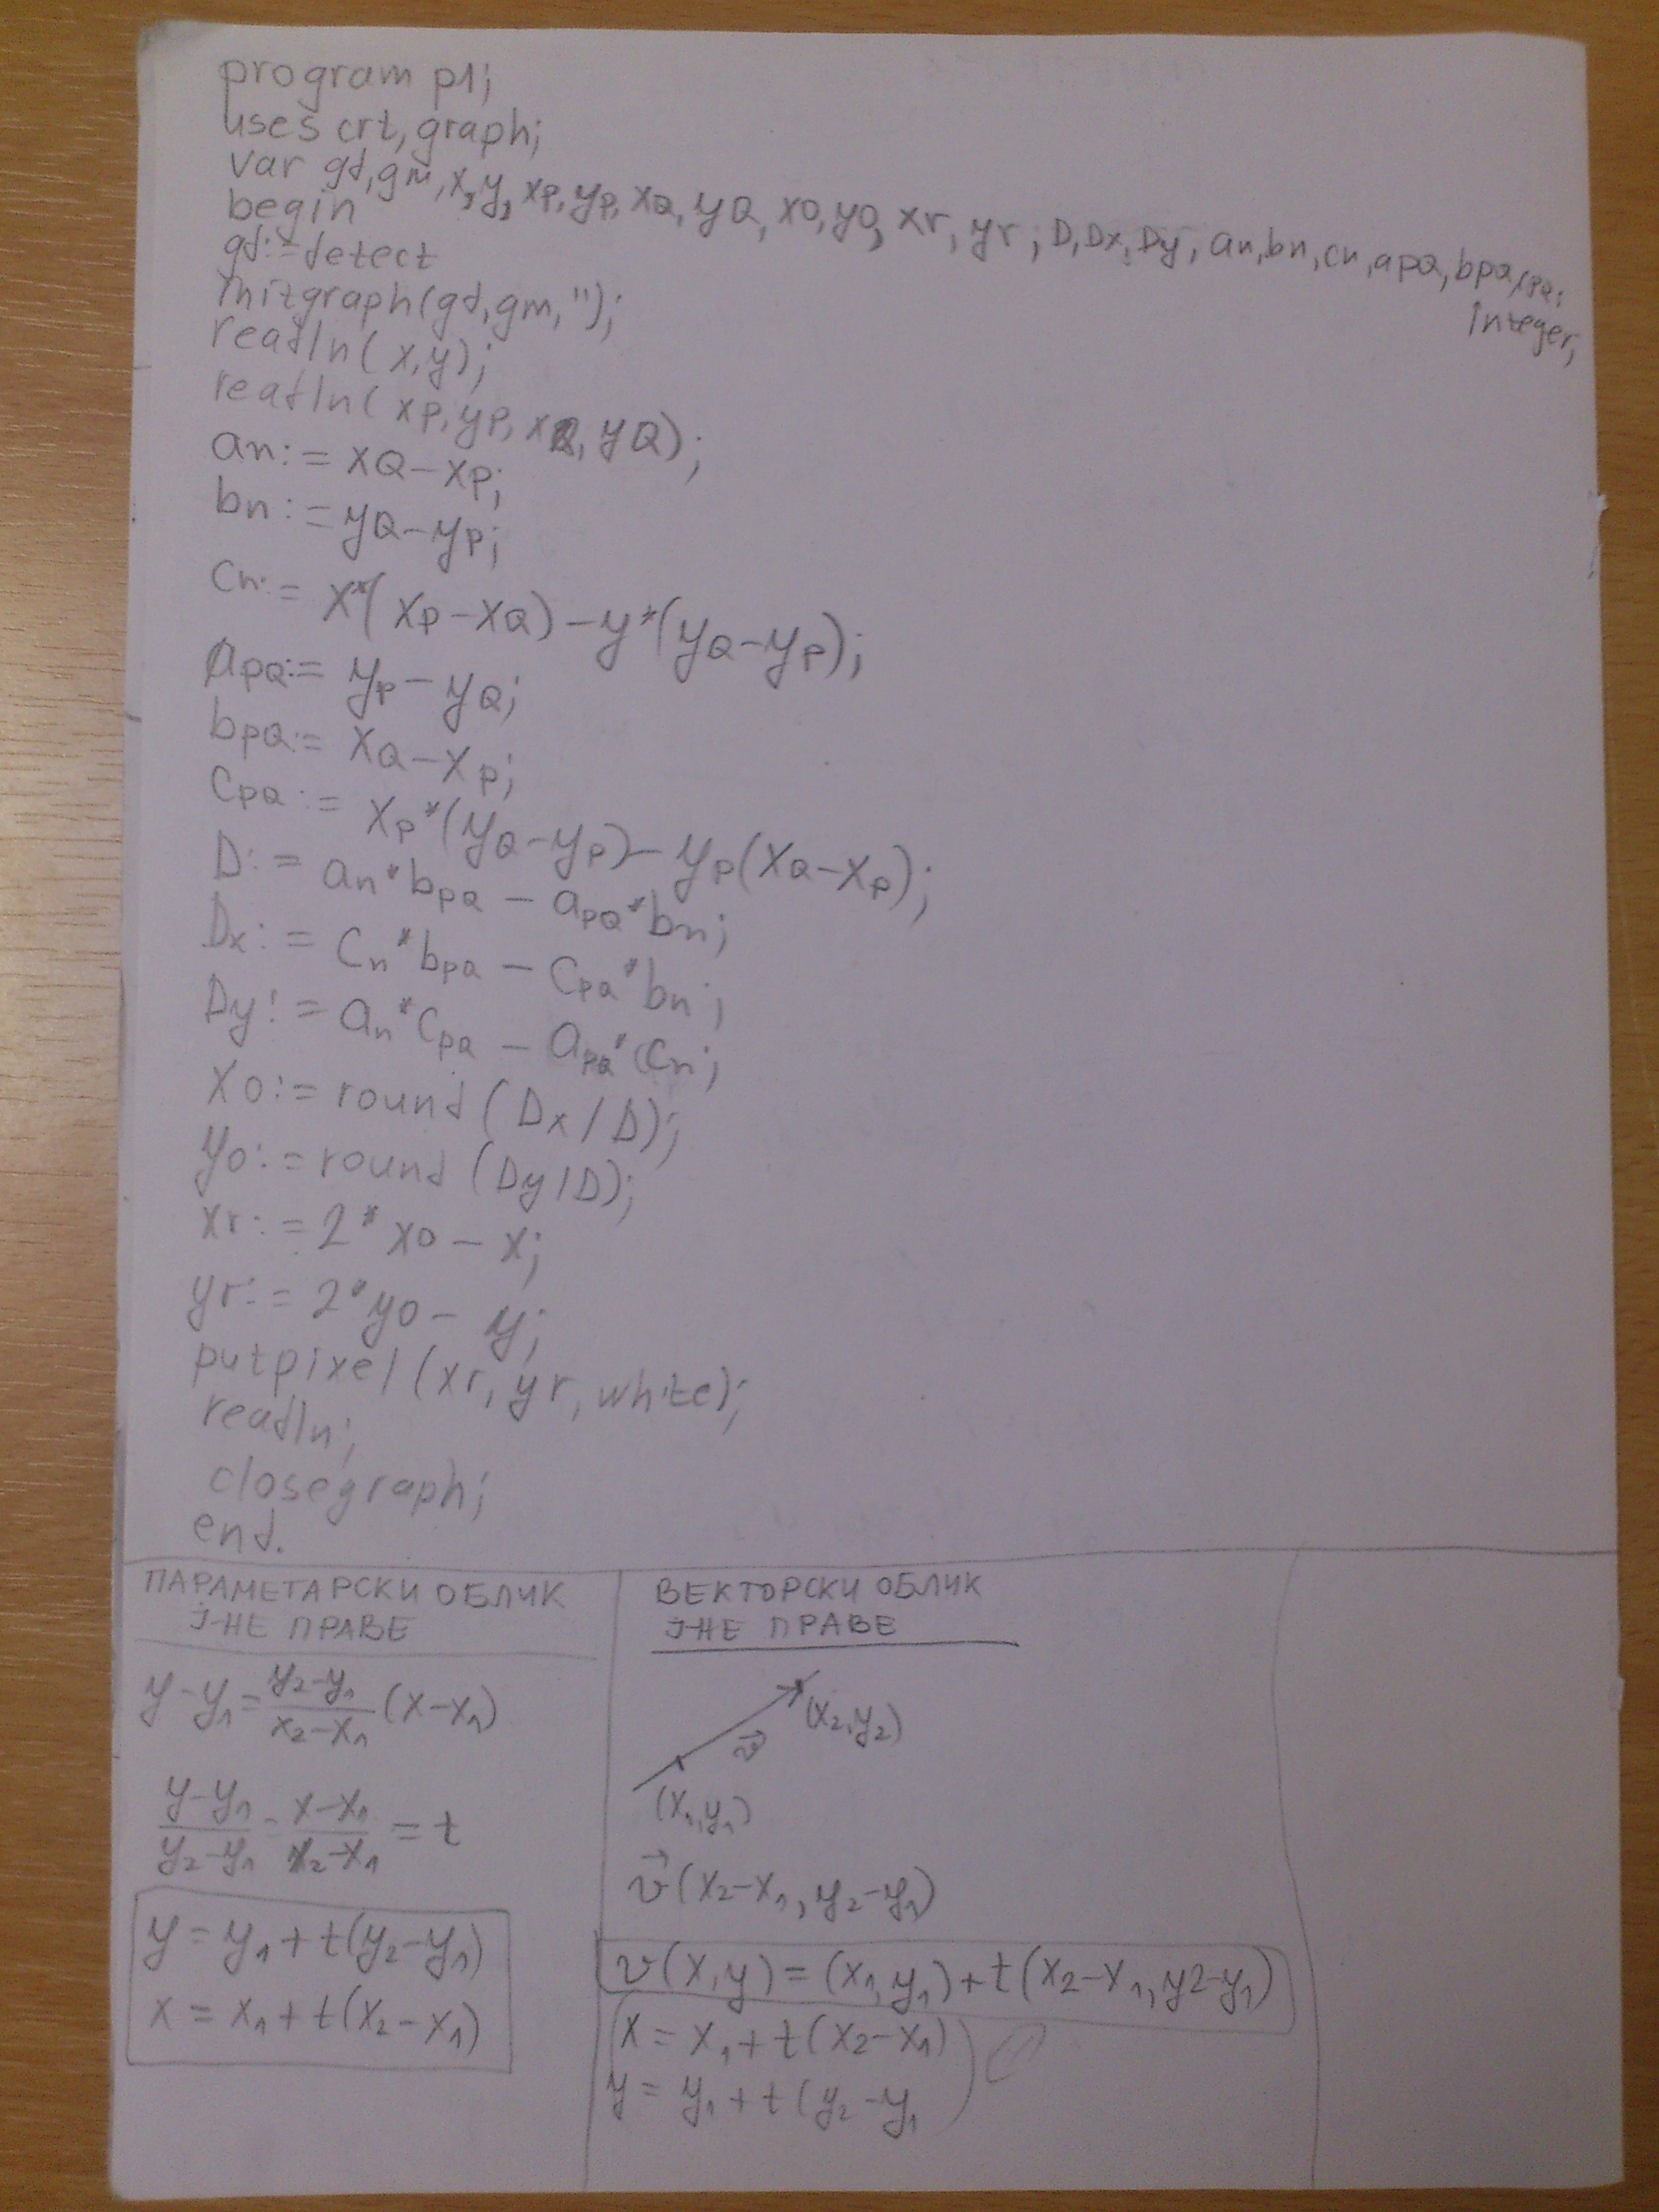 program p1;
uses crt, graph;
var gd, gm, x, y, xp, yp, xQ, yQ, x0, y0, xr, yr, D, Dx, Dy, an, bn, cn, apQ, bpQ, cpQ:
integer;
begin
gd:=detect
initgraph(gd, gm, '');
readln(x,y);
readln(xp, yp, xQ, yQ);
an:= xQ-xp;
bn:= yQ-yp;
cn:= x*(xp-xQ)-y*(yQ-yp);
apQ:= yp-yQ;
bpQ:= xQ-xp;
cpQ:= xp*(yQ-yp)-yp(xQ-xp);
D:= an*bpQ - apQ*bn;
Dx:= cn*bpQ - cpQ*bn;
Dy:= an*cpQ - apQ*cn;
x0:= round(Dx/D);
y0:= round(Dy/D);
xr:= 2*x0-x;
yr:= 2*y0-y;
putpixel(xr, yr, white);
readln;
closegraph;
end.
ПАРАМЕТАРСКИ ОБЛИК
Ј-НЕ ПРАВЕ
y-y₁=(y₂-y₁)/(x₂-x₁) (x-x₁)
(y-y₁)/(y₂-y₁) = (x-x₁)/(x₂-x₁) = t
y=y₁+t(y₂-y₁)
x=x₁+t(x₂-x₁)
ВЕКТОРСКИ ОБЛИК
Ј-НЕ ПРАВЕ
(x₂,y₂)
v⃗
(x₁,y₁)
v⃗(x₂-x₁, y₂-y₁)
v(x,y)=(x₁,y₁)+t(x₂-x₁,y2-y₁)
x=x₁+t(x₂-x₁)
y=y₁+t(y₂-y₁